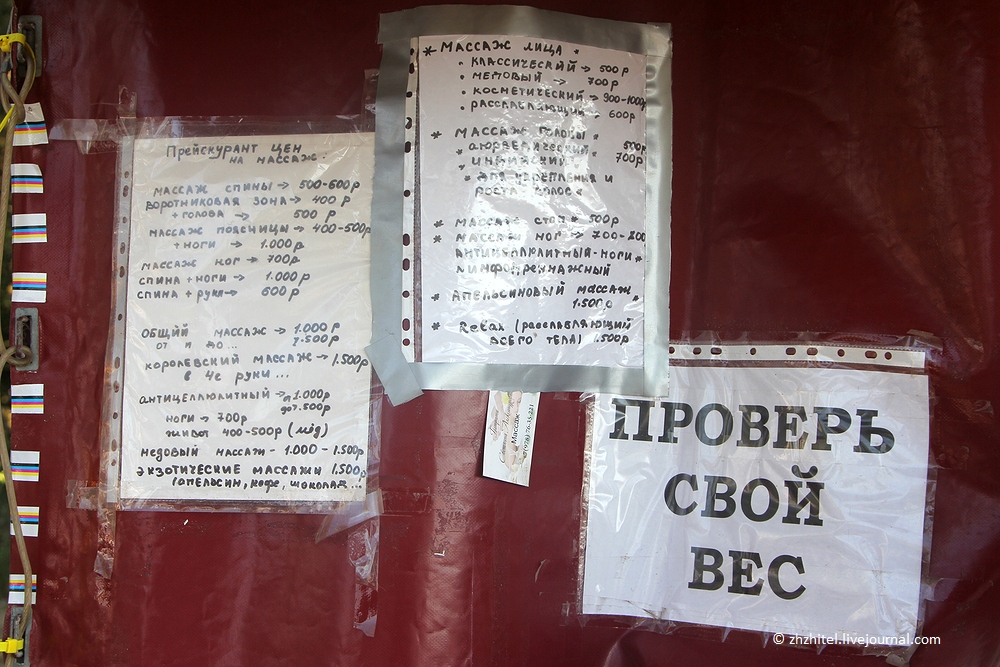 Прейскурант цен
на массаж.
массаж спины → 500-600р
воротниковая зона → 400р
+ голова → 500р
массаж поясницы → 400-500р
+ ноги → 1.000р
массаж ног → 700р
спина + ноги → 1.000р
спина + руки → 600р
общий массаж → 1.000р
от и до... 1.500р
королевский массаж → 1.500р
в 4е руки...
антицеллюлитный → 1.000р
до 1.500р
ноги → 700р
живот 400-500р (мёд)
медовый массаж - 1.000 - 1.500р
экзотические массажи 1.500р
(апельсин, кофе, шоколад...
* Массаж лица *
• классический → 500р
• медовый → 700р
• косметический → 900-1000р
• расслабляющий 600р
* массаж головы *
* аюрведический 500р
* индийский 700р
* для укрепления и
роста волос *
* массаж стоп * 500р
* массаж ног → 700-800
антицеллюлитный-ноги *
лимфодренажный
* апельсиновый массаж *
1.500р
* Relax (расслабляющий
всего тела) 1.500р
Массаж
ПРОВЕРЬ
СВОЙ
ВЕС
© zhzhitel.livejournal.com